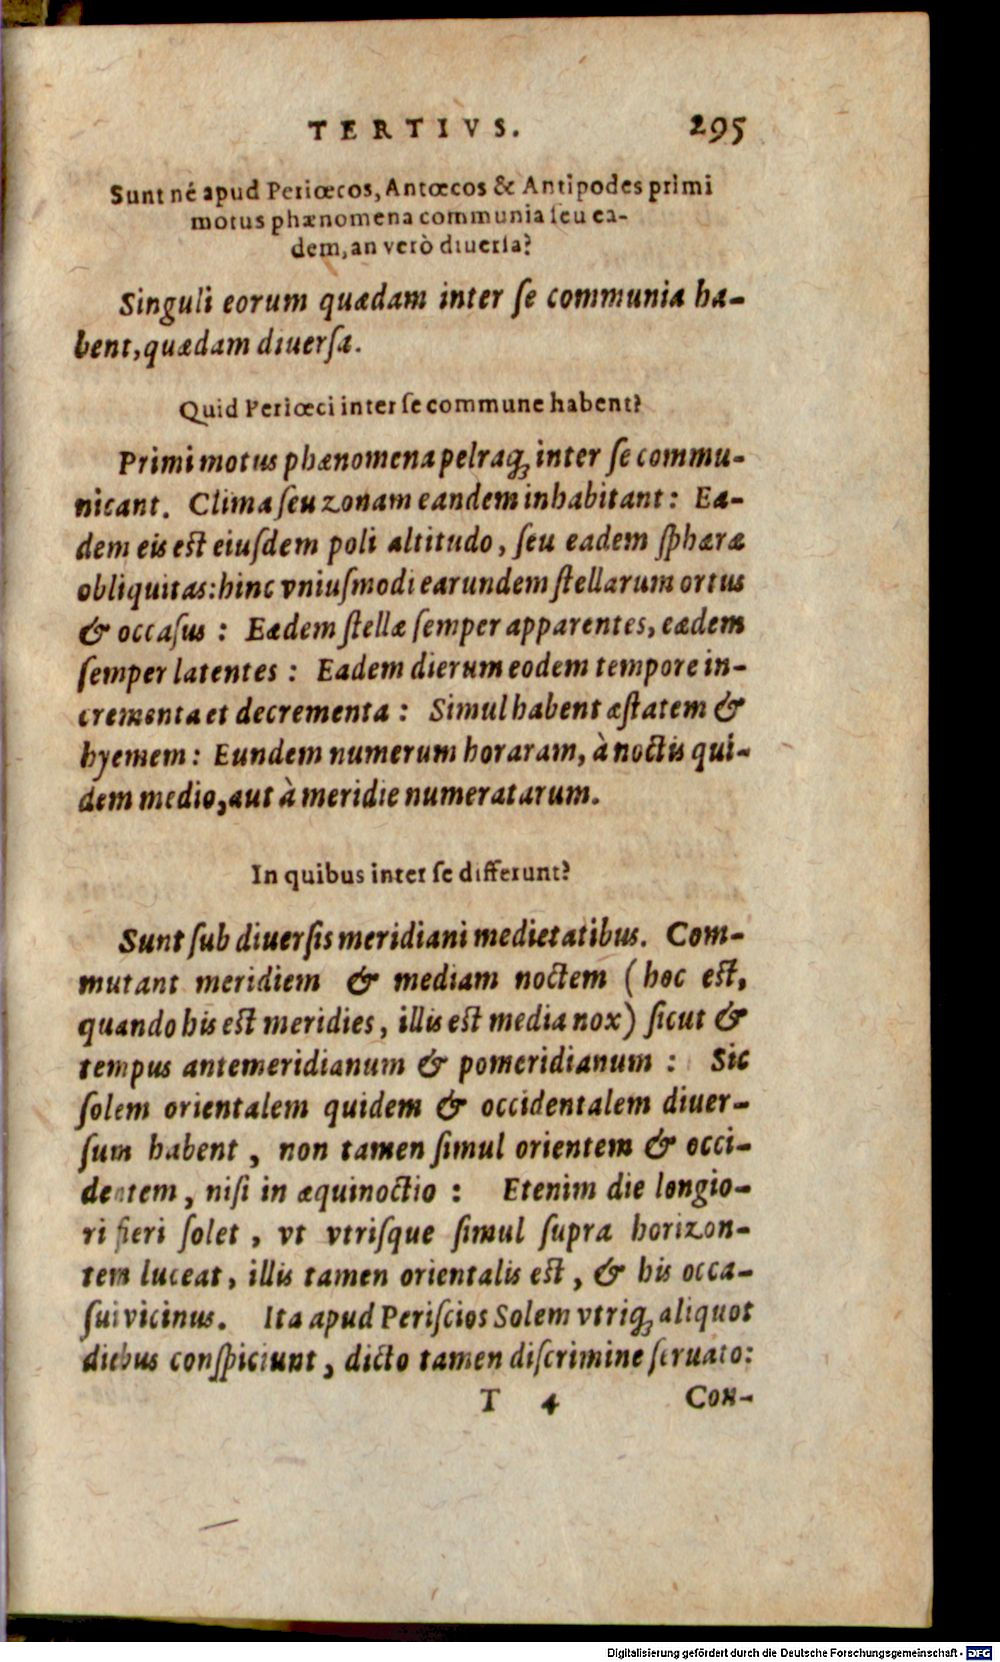 TERTIVS. 295
Sunt né apud Periœcos, Antœcos & Antipodes primi
motus phænomena communia ſeu ea-
dem, an verò diuerſa?
Singuli eorum quædam inter ſe communia ha-
bent, quædam diuerſa.
Quid Periœci inter ſe commune habent?
Primi motus phænomena pelraq́; inter ſe commu-
nicant. Clima ſeu zonam eandem inhabitant: Ea-
dem eis est eiuſdem poli altitudo, ſeu eadem ſphæræ
obliquitas: hinc vniuſmodi earundem ſtellarum ortus
& occaſus: Eædem ſtellæ ſemper apparentes, eædem
ſemper latentes: Eadem dierum eodem tempore in-
crementa et decrementa: Simul habent æſtatem &
hyemem: Eundem numerum horaram, à noctis qui-
dem medio, aut à meridie numeratarum.
In quibus inter ſe differunt?
Sunt ſub diuerſis meridiani medietatibus. Com-
mutant meridiem & mediam noctem (hoc eſt,
quando his eſt meridies, illis eſt media nox) ſicut &
tempus antemeridianum & pomeridianum: Sic
ſolem orientalem quidem & occidentalem diuer-
ſum habent, non tamen ſimul orientem & occi-
dentem, niſi in æquinoctio: Etenim die longio-
ri fieri ſolet, vt vtriſque ſimul ſupra horizon-
tem luceat, illis tamen orientalis eſt, & his occa-
ſui vicinus. Ita apud Periſcios Solem vtriq́; aliquot
diebus conſpiciunt, dicto tamen diſcrimine ſeruato:
T 4 Con-
Digitalisierung gefördert durch die Deutsche Forschungsgemeinschaft - DFG